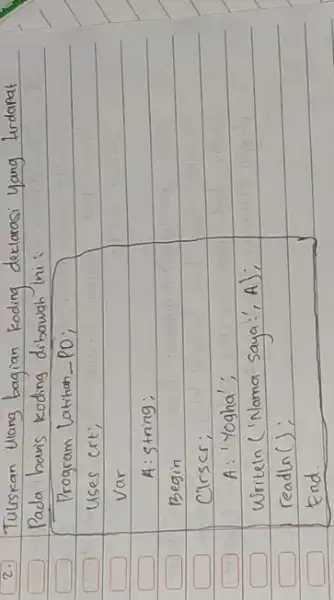 2. Tuliskan Ulang bagian Koding deklarasi yang terdapat
Pada baris Koding dibawah ini :
Program Latihan_PD;
Uses crt;
Var
A: string;
Begin
Clrscr;
A: 'Yogha';
Writeln ('Nama saya:', A);
readln();
End.